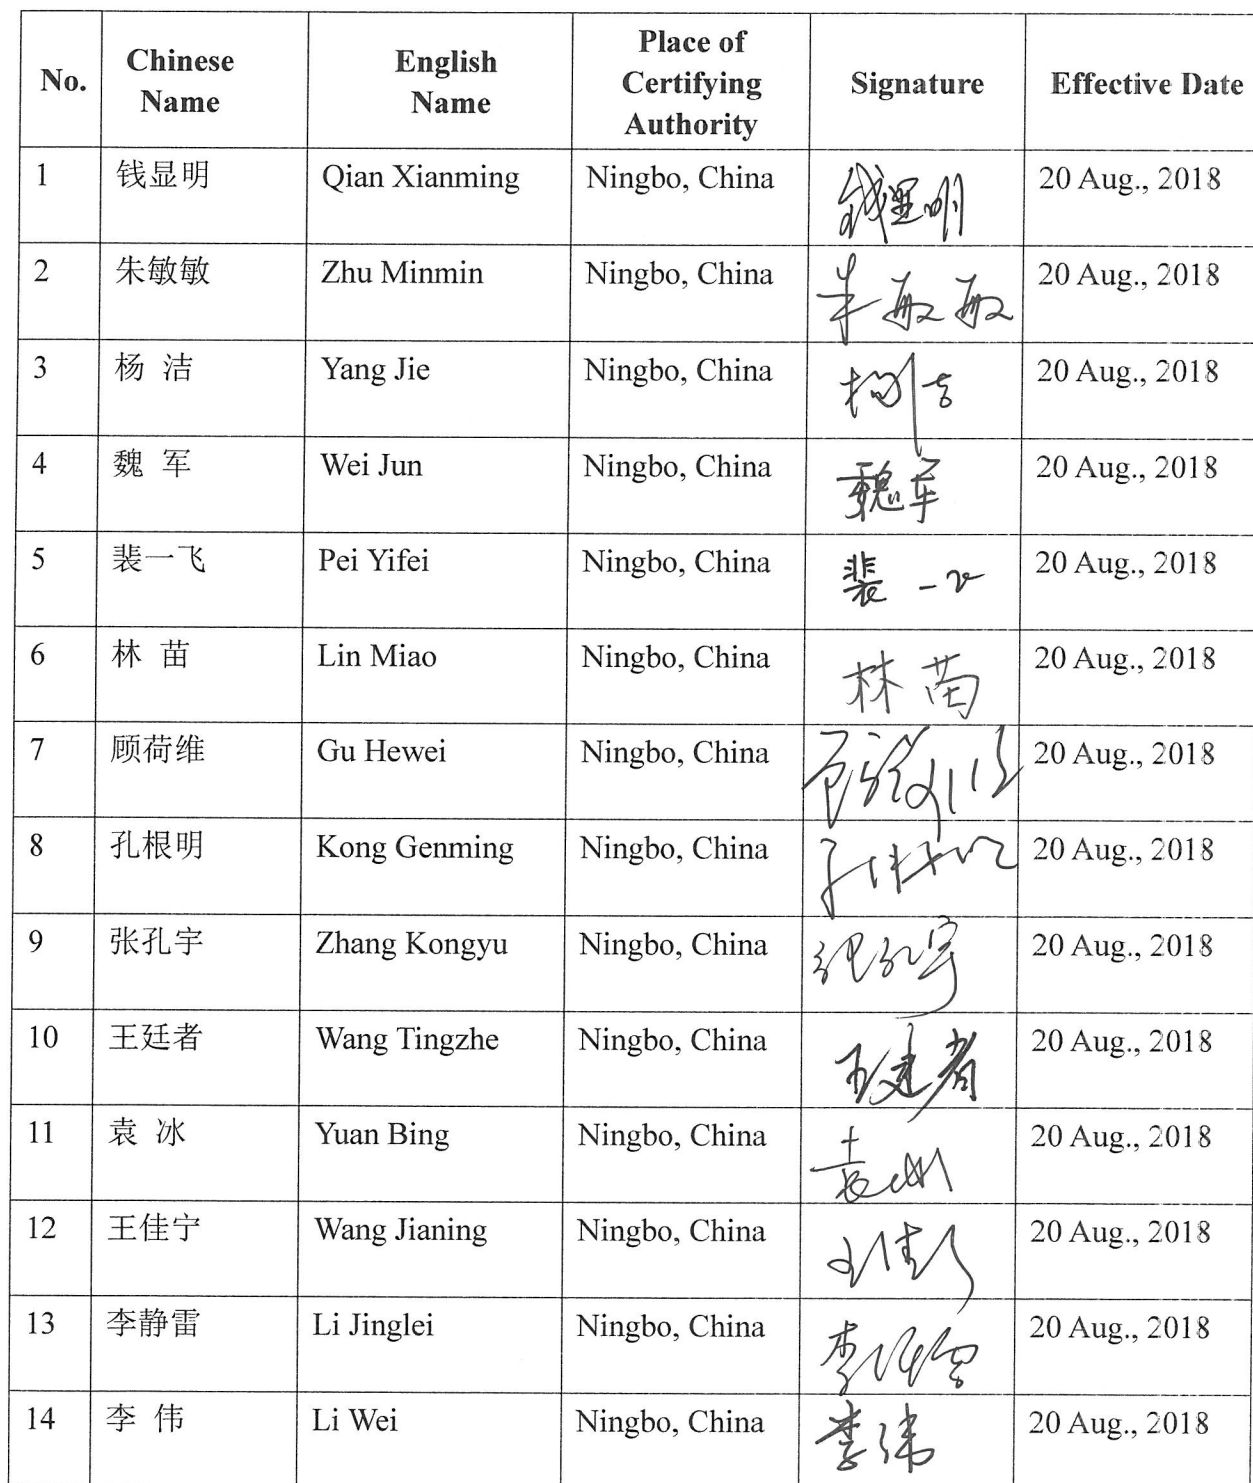 No. Chinese Name English Name Place of Certifying Authority Signature Effective Date
1 钱显明 Qian Xianming Ningbo, China 钱显明 20 Aug., 2018
2 朱敏敏 Zhu Minmin Ningbo, China 朱敏敏 20 Aug., 2018
3 杨 洁 Yang Jie Ningbo, China 杨洁 20 Aug., 2018
4 魏 军 Wei Jun Ningbo, China 魏军 20 Aug., 2018
5 裴一飞 Pei Yifei Ningbo, China 裴一飞 20 Aug., 2018
6 林 苗 Lin Miao Ningbo, China 林苗 20 Aug., 2018
7 顾荷维 Gu Hewei Ningbo, China 20 Aug., 2018
8 孔根明 Kong Genming Ningbo, China 20 Aug., 2018
9 张孔宇 Zhang Kongyu Ningbo, China 张孔宇 20 Aug., 2018
10 王廷者 Wang Tingzhe Ningbo, China 王廷者 20 Aug., 2018
11 袁 冰 Yuan Bing Ningbo, China 袁冰 20 Aug., 2018
12 王佳宁 Wang Jianing Ningbo, China 20 Aug., 2018
13 李静雷 Li Jinglei Ningbo, China 20 Aug., 2018
14 李 伟 Li Wei Ningbo, China 李伟 20 Aug., 2018